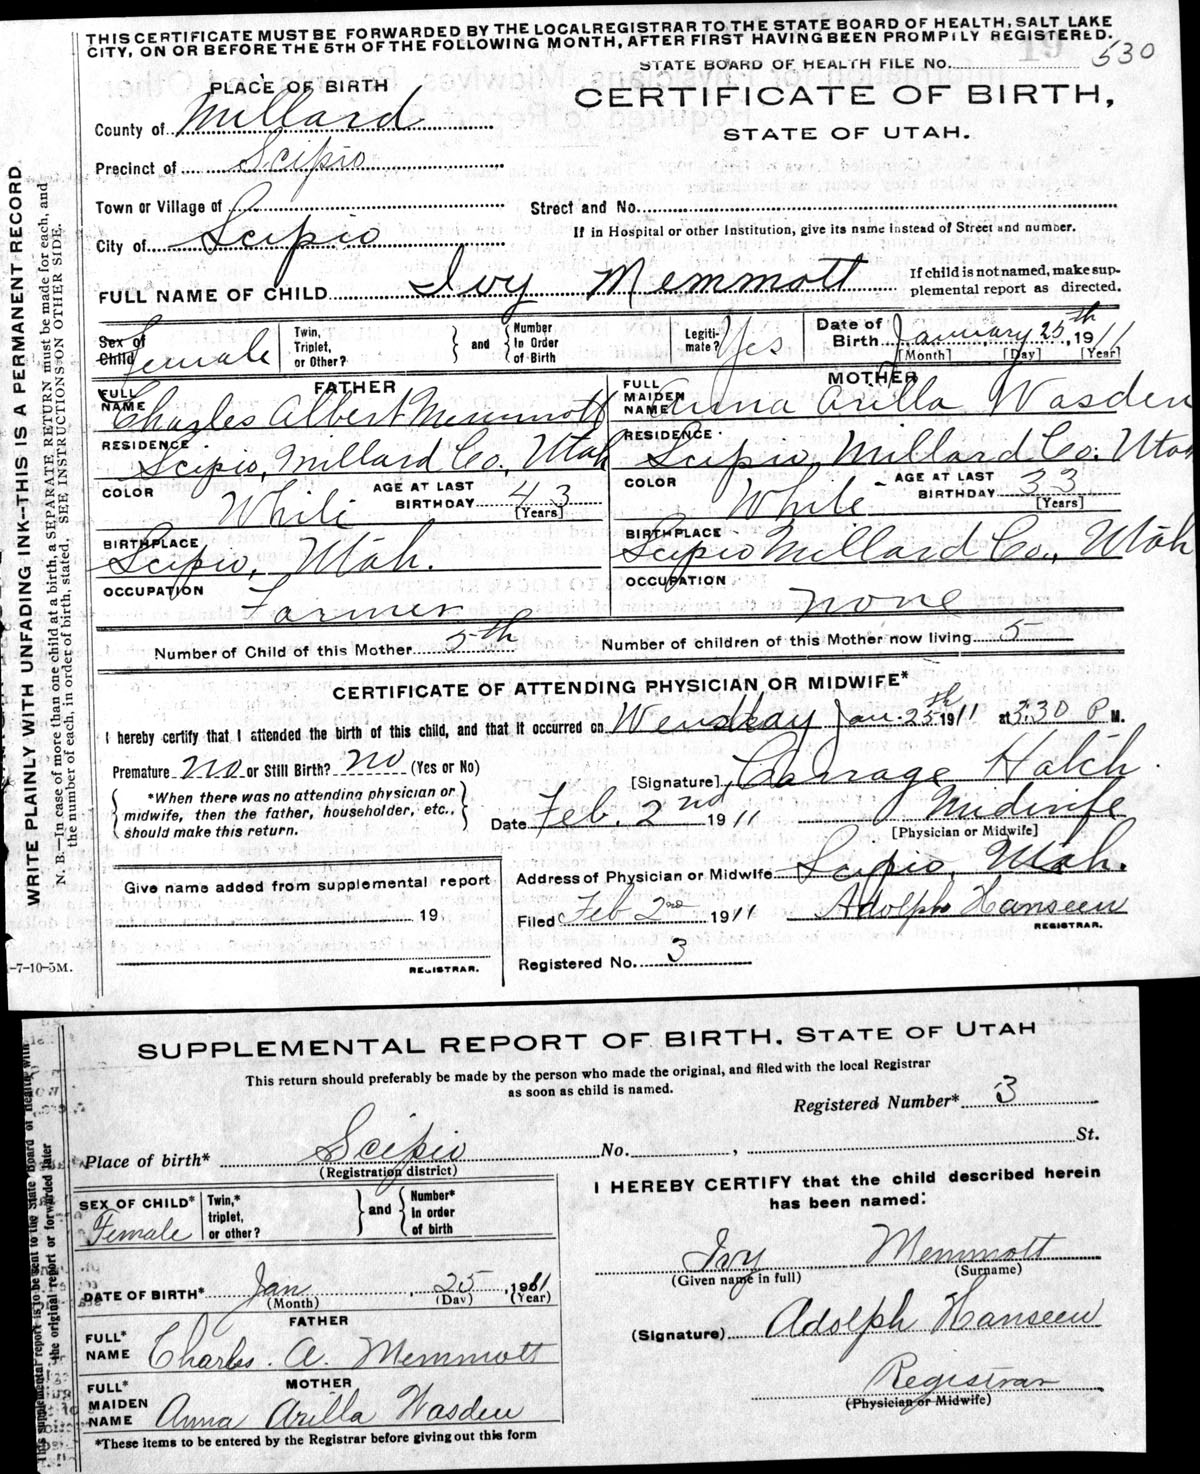 THIS CERTIFICATE MUST BE FORWARDED BY THE LOCAL REGISTRAR TO THE STATE BOARD OF HEALTH, SALT LAKE
CITY, ON OR BEFORE THE 5TH OF THE FOLLOWING MONTH, AFTER FIRST HAVING BEEN PROMPILY REGISTERED.
STATE BOARD OF HEALTH FILE No. 530
PLACE OF BIRTH
CERTIFICATE OF BIRTH,
STATE OF UTAH.
County of Millard
Precinct of Scipio
Town or Village of
Street and No.
City of Scipio
If in Hospital or other Institution, give its name instead of Street and number.
FULL NAME OF CHILD Ivy Memmott
If child is not named, make sup-
plemental report as directed.
Sex of Child Female
Twin, Triplet, or Other?
and
Number In Order of Birth
Legiti-mate? Yes
Date of Birth January 25th, 1911
[Month] [Day] [Year]
FATHER
FULL NAME Charles Albert Memmott
RESIDENCE Scipio, Millard Co., Utah
COLOR White
AGE AT LAST BIRTHDAY 43 [Years]
BIRTHPLACE Scipio, Utah.
OCCUPATION Farmer
MOTHER
FULL MAIDEN NAME Anna Arilla Wasden
RESIDENCE Scipio, Millard Co. Utah
COLOR White
AGE AT LAST BIRTHDAY 33 [Years]
BIRTHPLACE Scipio Millard Co., Utah
OCCUPATION none
Number of Child of this Mother 5th
Number of children of this Mother now living 5
CERTIFICATE OF ATTENDING PHYSICIAN OR MIDWIFE*
I hereby certify that I attended the birth of this child, and that it occurred on Wendsday Jan. 25th 1911 at 3.30 P M.
Premature no or Still Birth? no (Yes or No)
*When there was no attending physician or
midwife, then the father, householder, etc.,
should make this return.
[Signature] Hatch.
Date Feb. 2nd 1911
Midwife
[Physician or Midwife]
Address of Physician or Midwife Scipio, Utah.
Give name added from supplemental report
19
REGISTRAR.
Filed Feb 2nd 1911
Adolph Hanseen
REGISTRAR.
Registered No. 3
-7-10-5M.
WRITE PLAINLY WITH UNFADING INK—THIS IS A PERMANENT RECORD
N. B.—In case of more than one child at a birth, a SEPARATE RETURN must be made for each, and
the number of each, in order of birth, stated. SEE INSTRUCTIONS ON OTHER SIDE.
SUPPLEMENTAL REPORT OF BIRTH, STATE OF UTAH
This return should preferably be made by the person who made the original, and filed with the local Registrar
as soon as child is named.
Registered Number* 3
Place of birth* Scipio
(Registration district)
No. , St.
SEX OF CHILD* Female
Twin,* triplet, or other?
and
Number* In order of birth
DATE OF BIRTH* Jan 25, 1911
(Month) (Day) (Year)
FATHER
FULL* NAME Charles. A. Memmott
MOTHER
FULL* MAIDEN NAME Anna Arilla Wasden
*These items to be entered by the Registrar before giving out this form
I HEREBY CERTIFY that the child described herein
has been named:
Ivy Memmott
(Given name in full) (Surname)
(Signature) Adolph Hanseen
Registrar
(Physician or Midwife)
This supplemental report is to be sent to the State Board of Health with
the original report or forwarded later